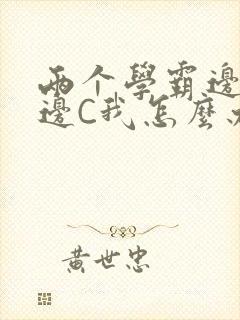 兩个學霸邊
邊C我怎麼
黃世忠